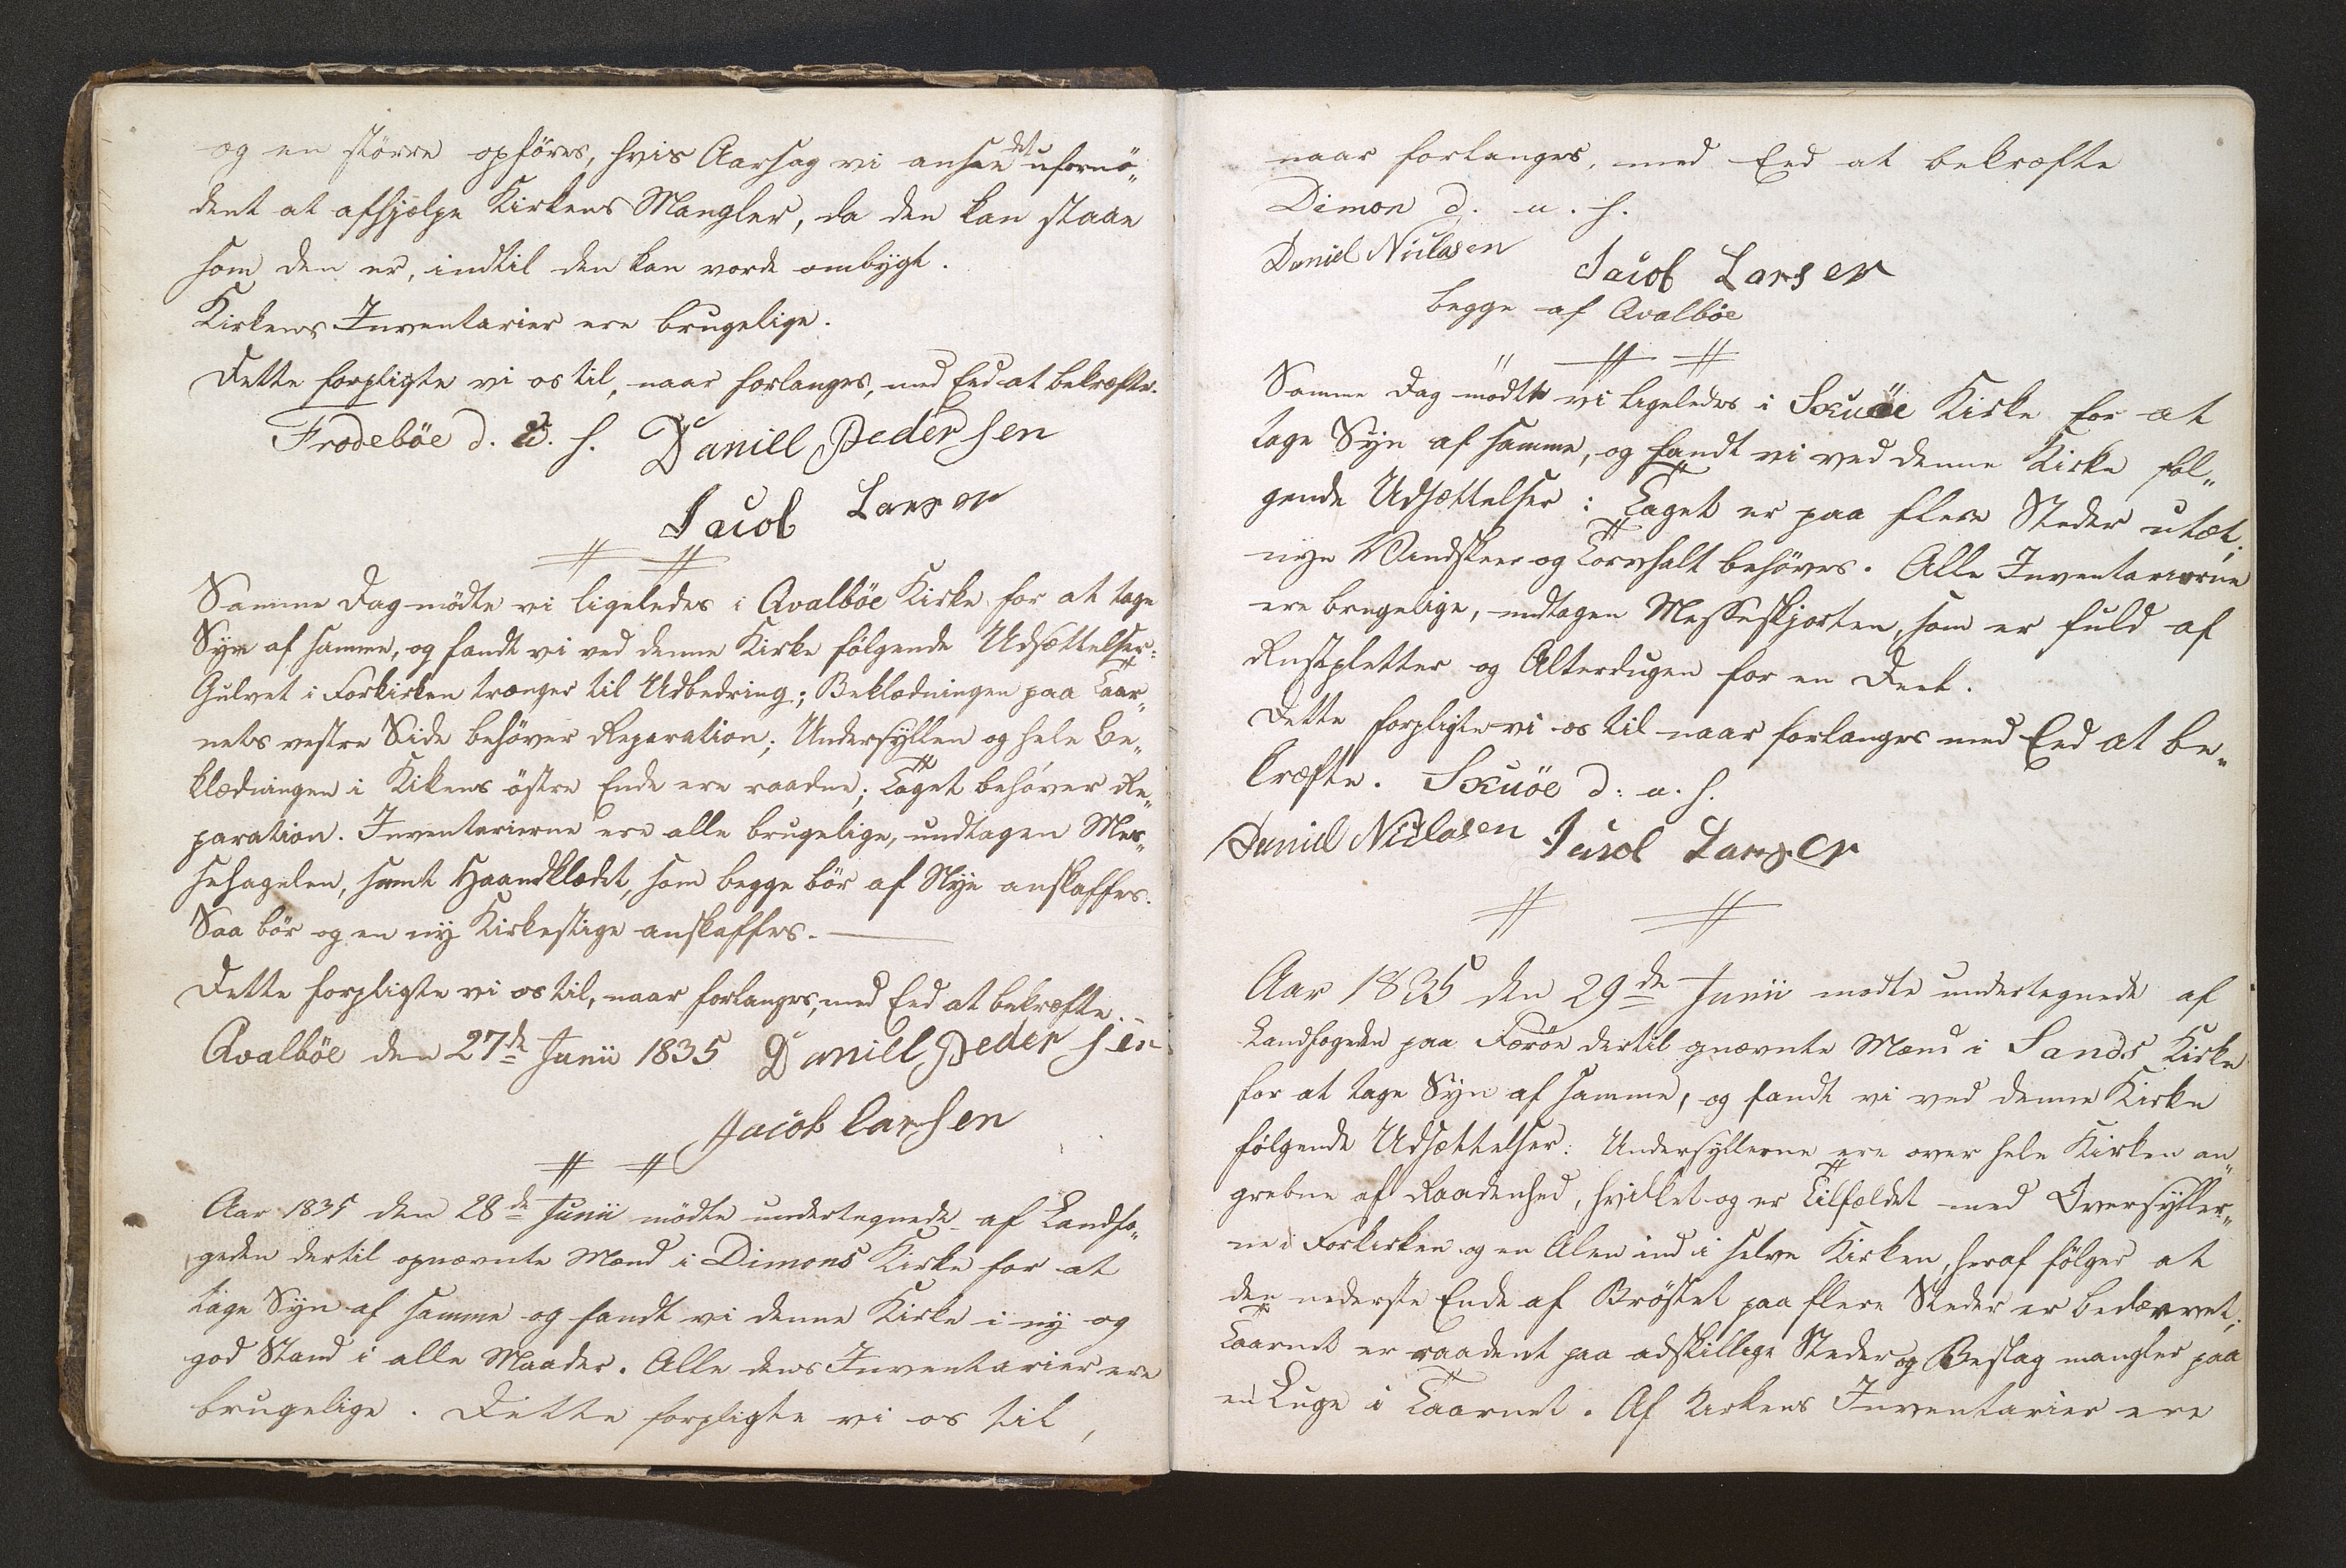 og en större opföres, hvis Aarsag vi ansee det ufornö„
dent at afhjelpe Kirkens Mangler, da den kan staae
som den er, indtil den kan vorde ombygt.
Kirkens Inventarier ere brugelige.
Dette forpligte vi os til, naar forlanges, med Eed at bekræfte.
Frodeböe d. u. s. Daniell Pedersen
Jacob Larsen
Samme Dag mödte vi ligeledes i Qvalböe Kirke for at tage
Syn af samme, og fandt vi ved denne Kirke fölgende Udsættelser:
Gulvet i Forkirken trænger til Udbedring; Beklædningen paa Taar„
nets vestre Side behöver Reparation; Undersyllen og hele Be„
klædningen i Kikens östre Ende ere raadne; Taget behöver Re„
paration. Inventarierne ere alle brugelige, undtagen Mes„
sehagelen, samt Haandklædet, som begge bör af Nye anskaffes.
Saa bör og en ny Kirkestige anskaffes.
Dette forpligte vi os til, naar forlanges, med Eed at bekræfte.
Qvalböe den 27de Junii 1835 Daniell Pedersen
Jacob Larsen
Aar 1835 den 28de Junii mödte undertegnede af Landfo„
geden dertil opnævnte Mænd i Dimons Kirke for at
tage Syn af samme og fandt vi denne Kirke i ny og
god Stand i alle Maader. Alle dens Inventarier ere
brugelige. Dette forpligte vi os til,
naar forlanges, med Eed at bekræfte
Dimon d. u. s.
Daniel Niclasen Jacob Larsen
begge af Qvalböe
Samme Dag mödte vi ligeledes i Skuöe Kirke for at
tage Syn af samme, og fandt vi ved denne Kirke föl„
gende Udsættelser: Taget er paa flere Steder utæt;
nye Vindskeer og Torvhalt behöves. Alle Inventarierne
ere brugelige, undtagen Messeskjorten, som er fuld af
Rustpletter og Alterdugen for en Deel.
Dette forpligte vi os til naar forlanges med Eed at be„
kræfte. Skuöe d. u. s.
Daniel Niclasen Jacob Larsen
Aar 1835 den 29de Junii mödte undertegnede af
Landfogeden paa Færöe dertil gnævnte Mænd i Sands Kirke
for at tage Syn af samme, og fandt vi ved denne Kirke
fölgende Udsættelser: Undersyllerne ere over hele Kirken an„
grebne af Raadenhed, hvilket og er Tilfældet med Oversyller„
ne i Forkirken og en Alen ind i selve Kirken, heraf fölger at
den nederste Ende af Bröstet paa flere Steder er bedærvet;
Taarnet er raadent paa adskillige Steder og Beslag mangler paa
en Luge i Taarnet. Af Kirkens Inventarier ere